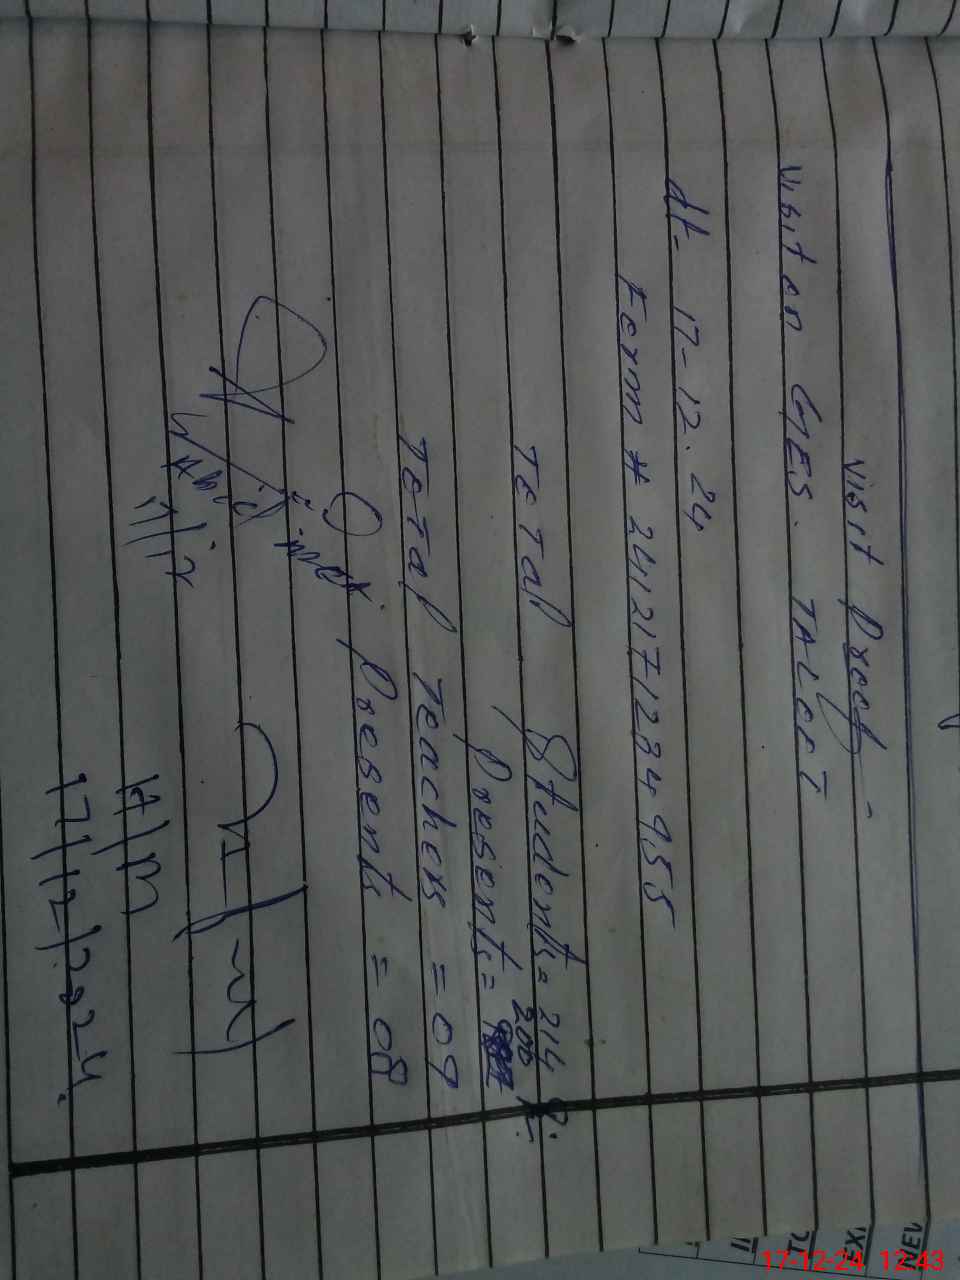 Visit Proof
Visit on GES. TALOOT
dt- 17-12.24
Form # 241217123495S
Total Students= 214
Presents= 200
Total Teachers = 09
Presents = 08
17/12
H/M
17/12/2024
NEW
EXI
TO
17-12-24 12:43